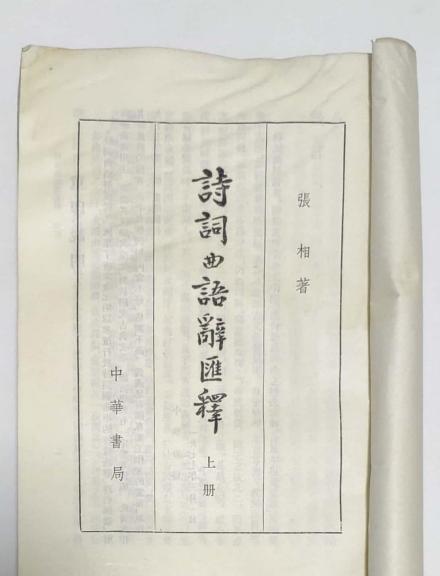 張相著
詩詞曲語辭匯釋
上册
中華書局